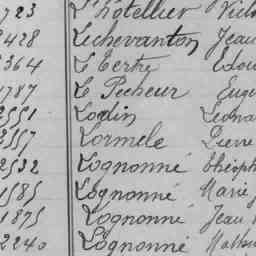 723 L'hôtellier Victo
2428 Lechevanton Jean
2364 Le Tertre Edou
1787 Le Pecheur Eugè
2551 Lodin Léona
3557 Lormele Pierre
2532 Lognonné théoph
1585 Lognonné Marie
1875 Lognonné Jean
2240 Lognonné Mathu